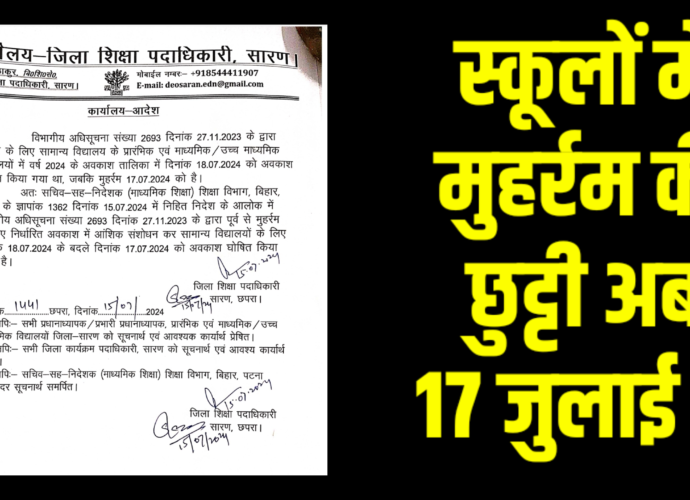 लय–जिला शिक्षा पदाधिकारी, सारण।
मोबाईल नम्बरः– +918544411907
पदाधिकारी, सारण।
E-mail: deosaran.edn@gmail.com
कार्यालय–आदेश
विभागीय अधिसूचना संख्या 2693 दिनांक 27.11.2023 के द्वारा
के लिए सामान्य विद्यालय के प्रारंभिक एवं माध्यमिक/उच्च माध्यमिक
लयों में वर्ष 2024 के अवकाश तालिका में दिनांक 18.07.2024 को अवकाश
किया गया था, जबकि मुहर्रम 17.07.2024 को है।
अतः सचिव–सह–निदेशक (माध्यमिक शिक्षा) शिक्षा विभाग, बिहार,
के ज्ञापांक 1362 दिनांक 15.07.2024 में निहित निदेश के आलोक में
गीय अधिसूचना संख्या 2693 दिनांक 27.11.2023 के द्वारा पूर्व से मुहर्रम
निर्धारित अवकाश में आंशिक संशोधन कर सामान्य विद्यालयों के लिए
18.07.2024 के बदले दिनांक 17.07.2024 को अवकाश घोषित किया
है।
15.07.2024
जिला शिक्षा पदाधिकारी
सारण, छपरा।
15/07/24
1441 छपरा, दिनांक 15/07/2024
पिः– सभी प्रधानाध्यापक/प्रभारी प्रधानाध्यापक, प्रारंभिक एवं माध्यमिक/उच्च
मिक विद्यालयों जिला–सारण को सूचनार्थ एवं आवश्यक कार्यार्थ प्रेषित।
पिः– सभी जिला कार्यक्रम पदाधिकारी, सारण को सूचनार्थ एवं आवश्य कार्यार्थ
पिः– सचिव–सह–निदेशक (माध्यमिक शिक्षा) शिक्षा विभाग, बिहार, पटना
दर सूचनार्थ समर्पित।
15.07.2024
जिला शिक्षा पदाधिकारी
सारण, छपरा।
15/07/24
स्कूलों में
मुहर्रम की
छुट्टी अब
17 जुलाई